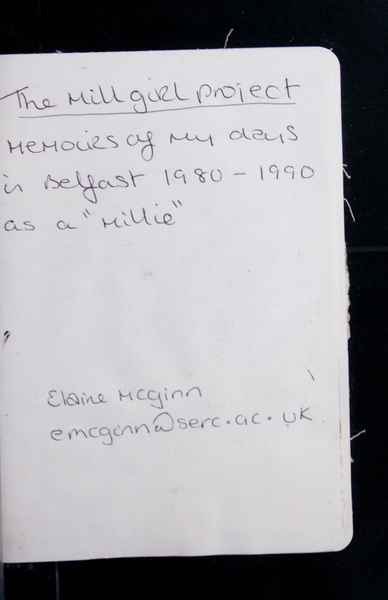 The Mill girl project
Memoirs of my days
in Belfast 1980 - 1990
as a "Millie"
Elaine McGinn
emcginn@serc.ac.uk